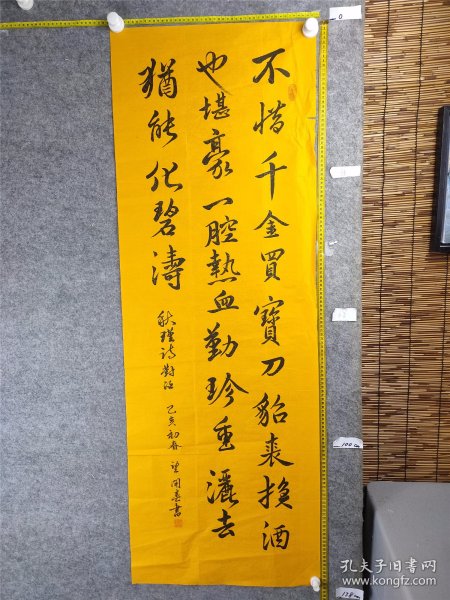 不惜千金買寶刀貂裘換酒
也堪豪一腔熱血勤珍重灑去
猶能化碧濤
秋瑾詩對酒 己亥初春 望開書
孔夫子旧书网
www.kongfz.com